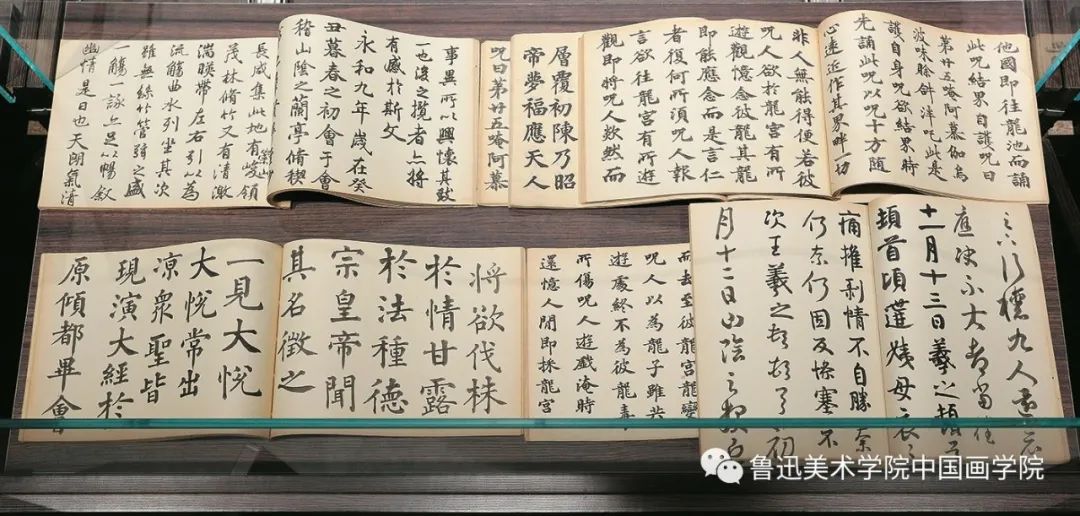 他國即往龍池而誦
此呪結界自護呪曰
第廿五唵阿慕伽烏
波味賒餘泮呪此是
護自身呪欲結界時
先誦此呪以呪十方隨
心遠近作其界畔一切
非人無能得便若彼
呪人欲於龍宮有所
遊觀憶念彼龍其龍
即能應念而是言仁
者復何所須呪人報
言欲往龍宮有所遊
觀即將呪人欻然而
層覆初陳乃昭
帝夢福應天人
呪曰第廿五唵阿慕
事異所以興懷其致
一也後之攬者亦將
有感於斯文
永和九年歲在癸
丑暮春之初會于會
稽山陰之蘭亭脩禊
長咸集此地有峻領
茂林脩竹又有清激
湍暎帶左右引以為
流觴曲水列坐其次
雖無絲竹管弦之盛
一觴一詠亦足以暢敘
幽情是日也天朗氣清
九人還示
應決不大都當任
十一月十三日羲之頓首
頓首頃遘姨母哀
痛摧剥情不自勝奈
何奈何因反慘塞不
次王羲之頓頓首初
月十二日山陰羲之報
而去至彼龍宮龍變
呪人以為龍子雖共
遊處終不為彼龍毒
所傷呪人遊戲淹時
還憶人間即採龍宮
將欲伐株
於情甘露
於法種德
宗皇帝聞
其名徵之
一見大悅
大悅常出
凉眾聖皆
現演大經於
原傾都畢會
鲁迅美术学院中国画学院